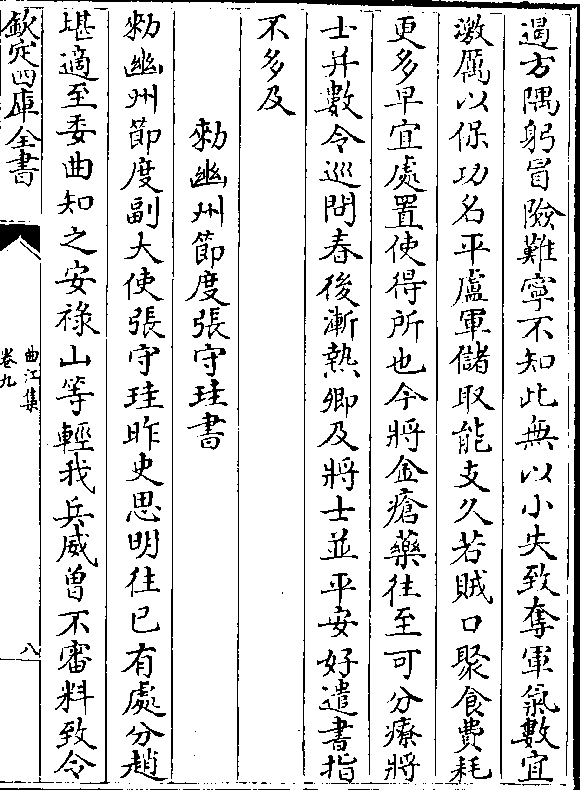 過方隅躬冒險難寧不知此無以小失致奪軍氣數宜
激厲以保功名平盧軍儲取能支久若賊口聚食費耗
更多早宜處置使得所也今將金瘡藥往至可分療將
士并數令巡問春後漸熱卿及將士並平安好遣書指
不多及
勅幽州節度張守珪書
勅幽州節度副大使張守珪昨史思明往已有處分趙
堪適至委曲知之安祿山等輕我兵威曾不審料致令
欽定四庫全書
曲江集
卷九
八